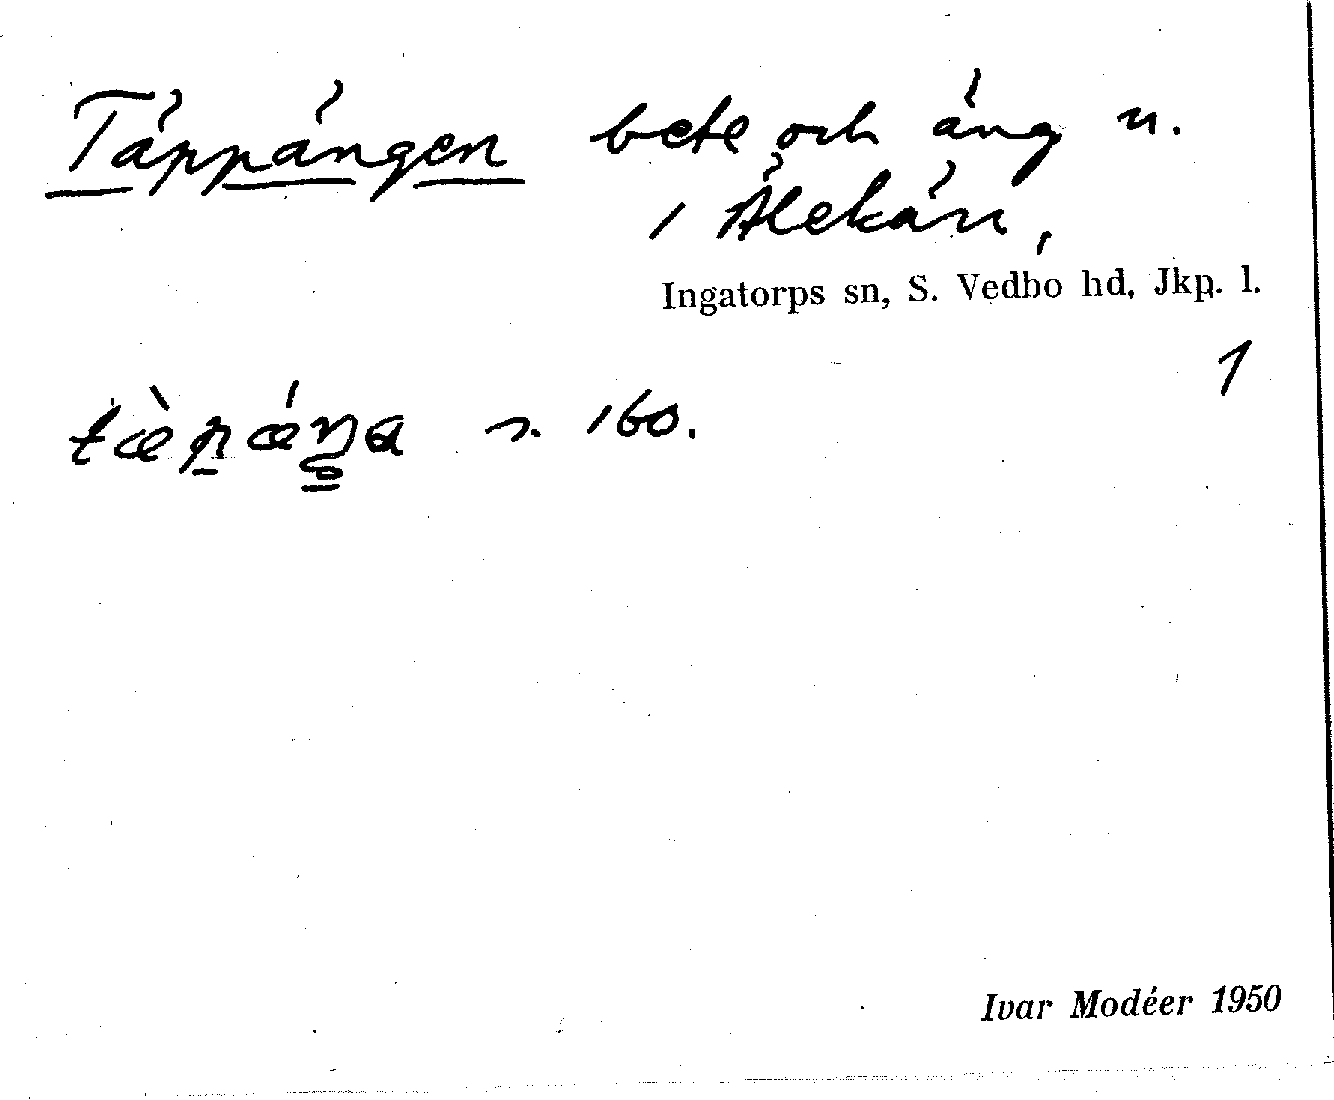 Täppängen bete och äng u.
/ Älekärr,
Ingatorps sn, S. Vedbo hd, Jkp. l.
1
s. 160.
Ivar Modéer 1950